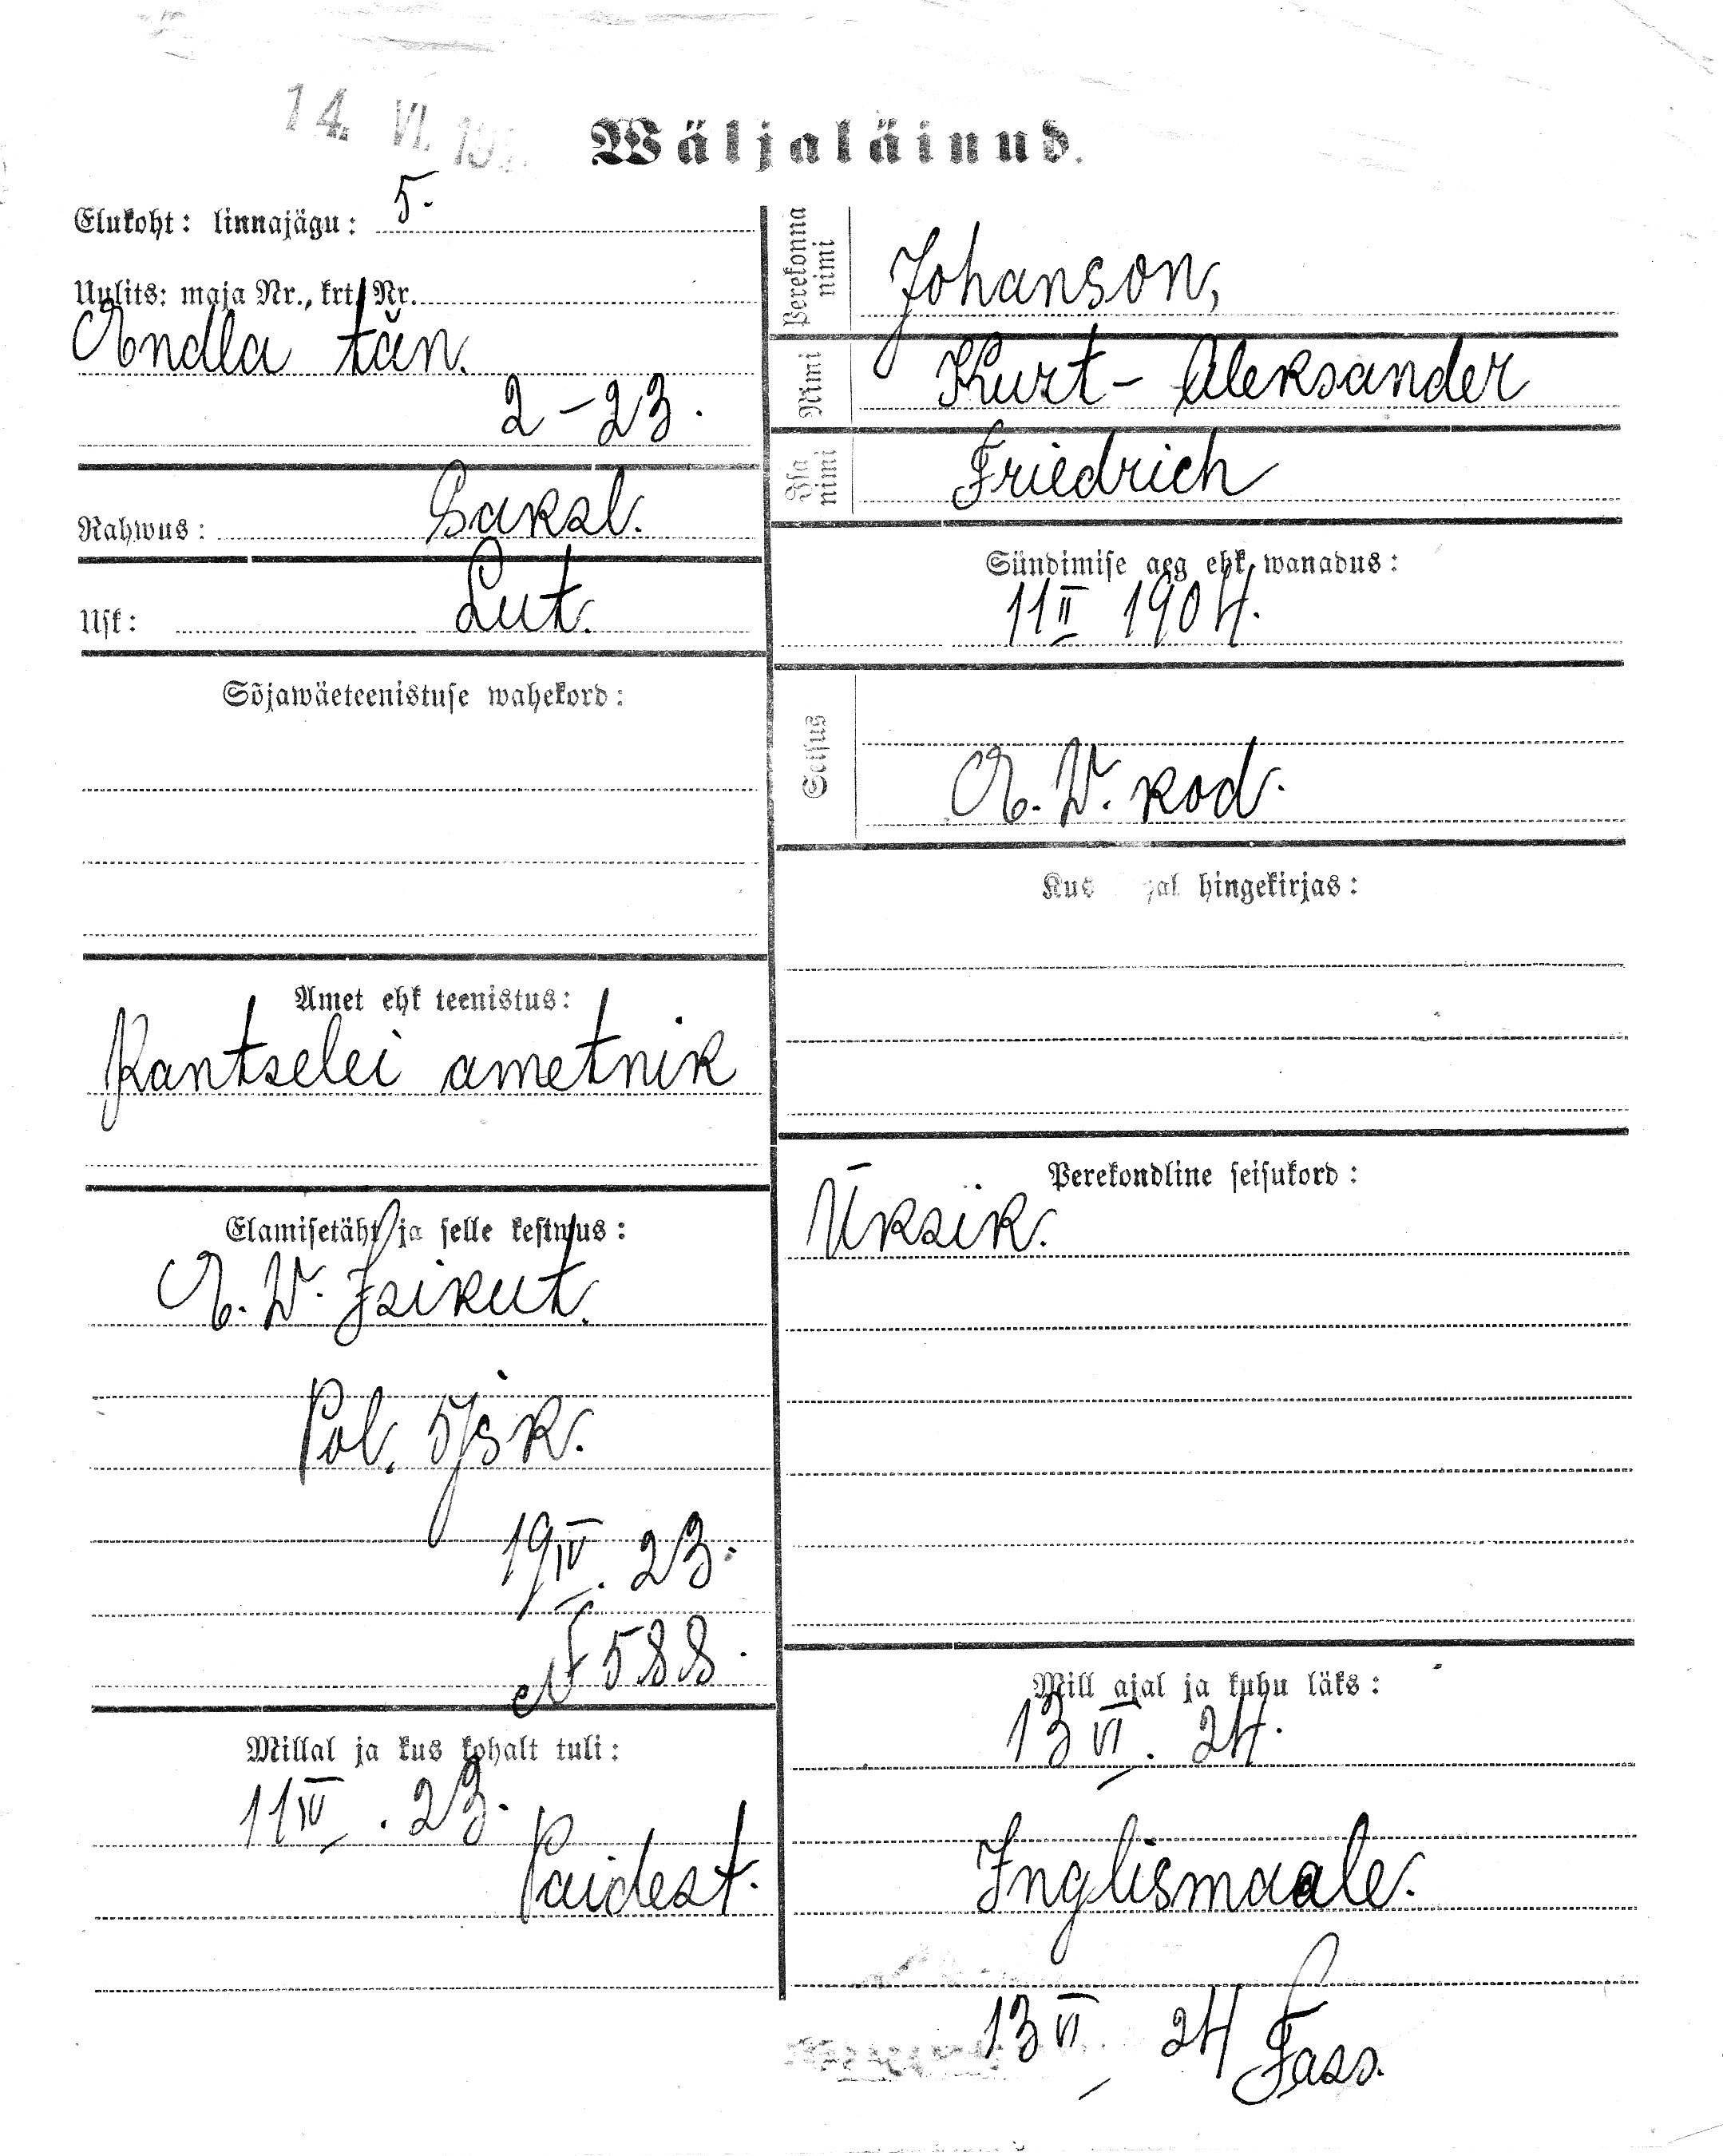 14. VI. 192
Wäljaläinud.
Elukoht: linnajägu: 5.
Uulits: maja Nr., krt. Nr.
Endla tän.
2-23.
Rahwus: Saksl.
Usk: Lut.
Sõjawäeteenistuse wahekord:
Amet ehk teenistus:
Kantselei ametnik
Elamisetäht ja selle kestwus:
E. W. Isikut.
Pol. 5 jsk.
19 IV. 23.
№ 588.
Millal ja kus kohalt tuli:
11 IV. 23.
Paidest.
Perekonna nimi
Johanson,
Nimi
Kurt-Aleksander
Isa nimi
Friedrich
Sündimise aeg ehk wanadus:
11 II 1904.
Seisus
E. W. kod.
Kus hingekirjas:
Perekondline seisukord:
Üksik.
Mill ajal ja kuhu läks:
13 VI. 24.
Inglismaale.
13 VI 24 Fass.